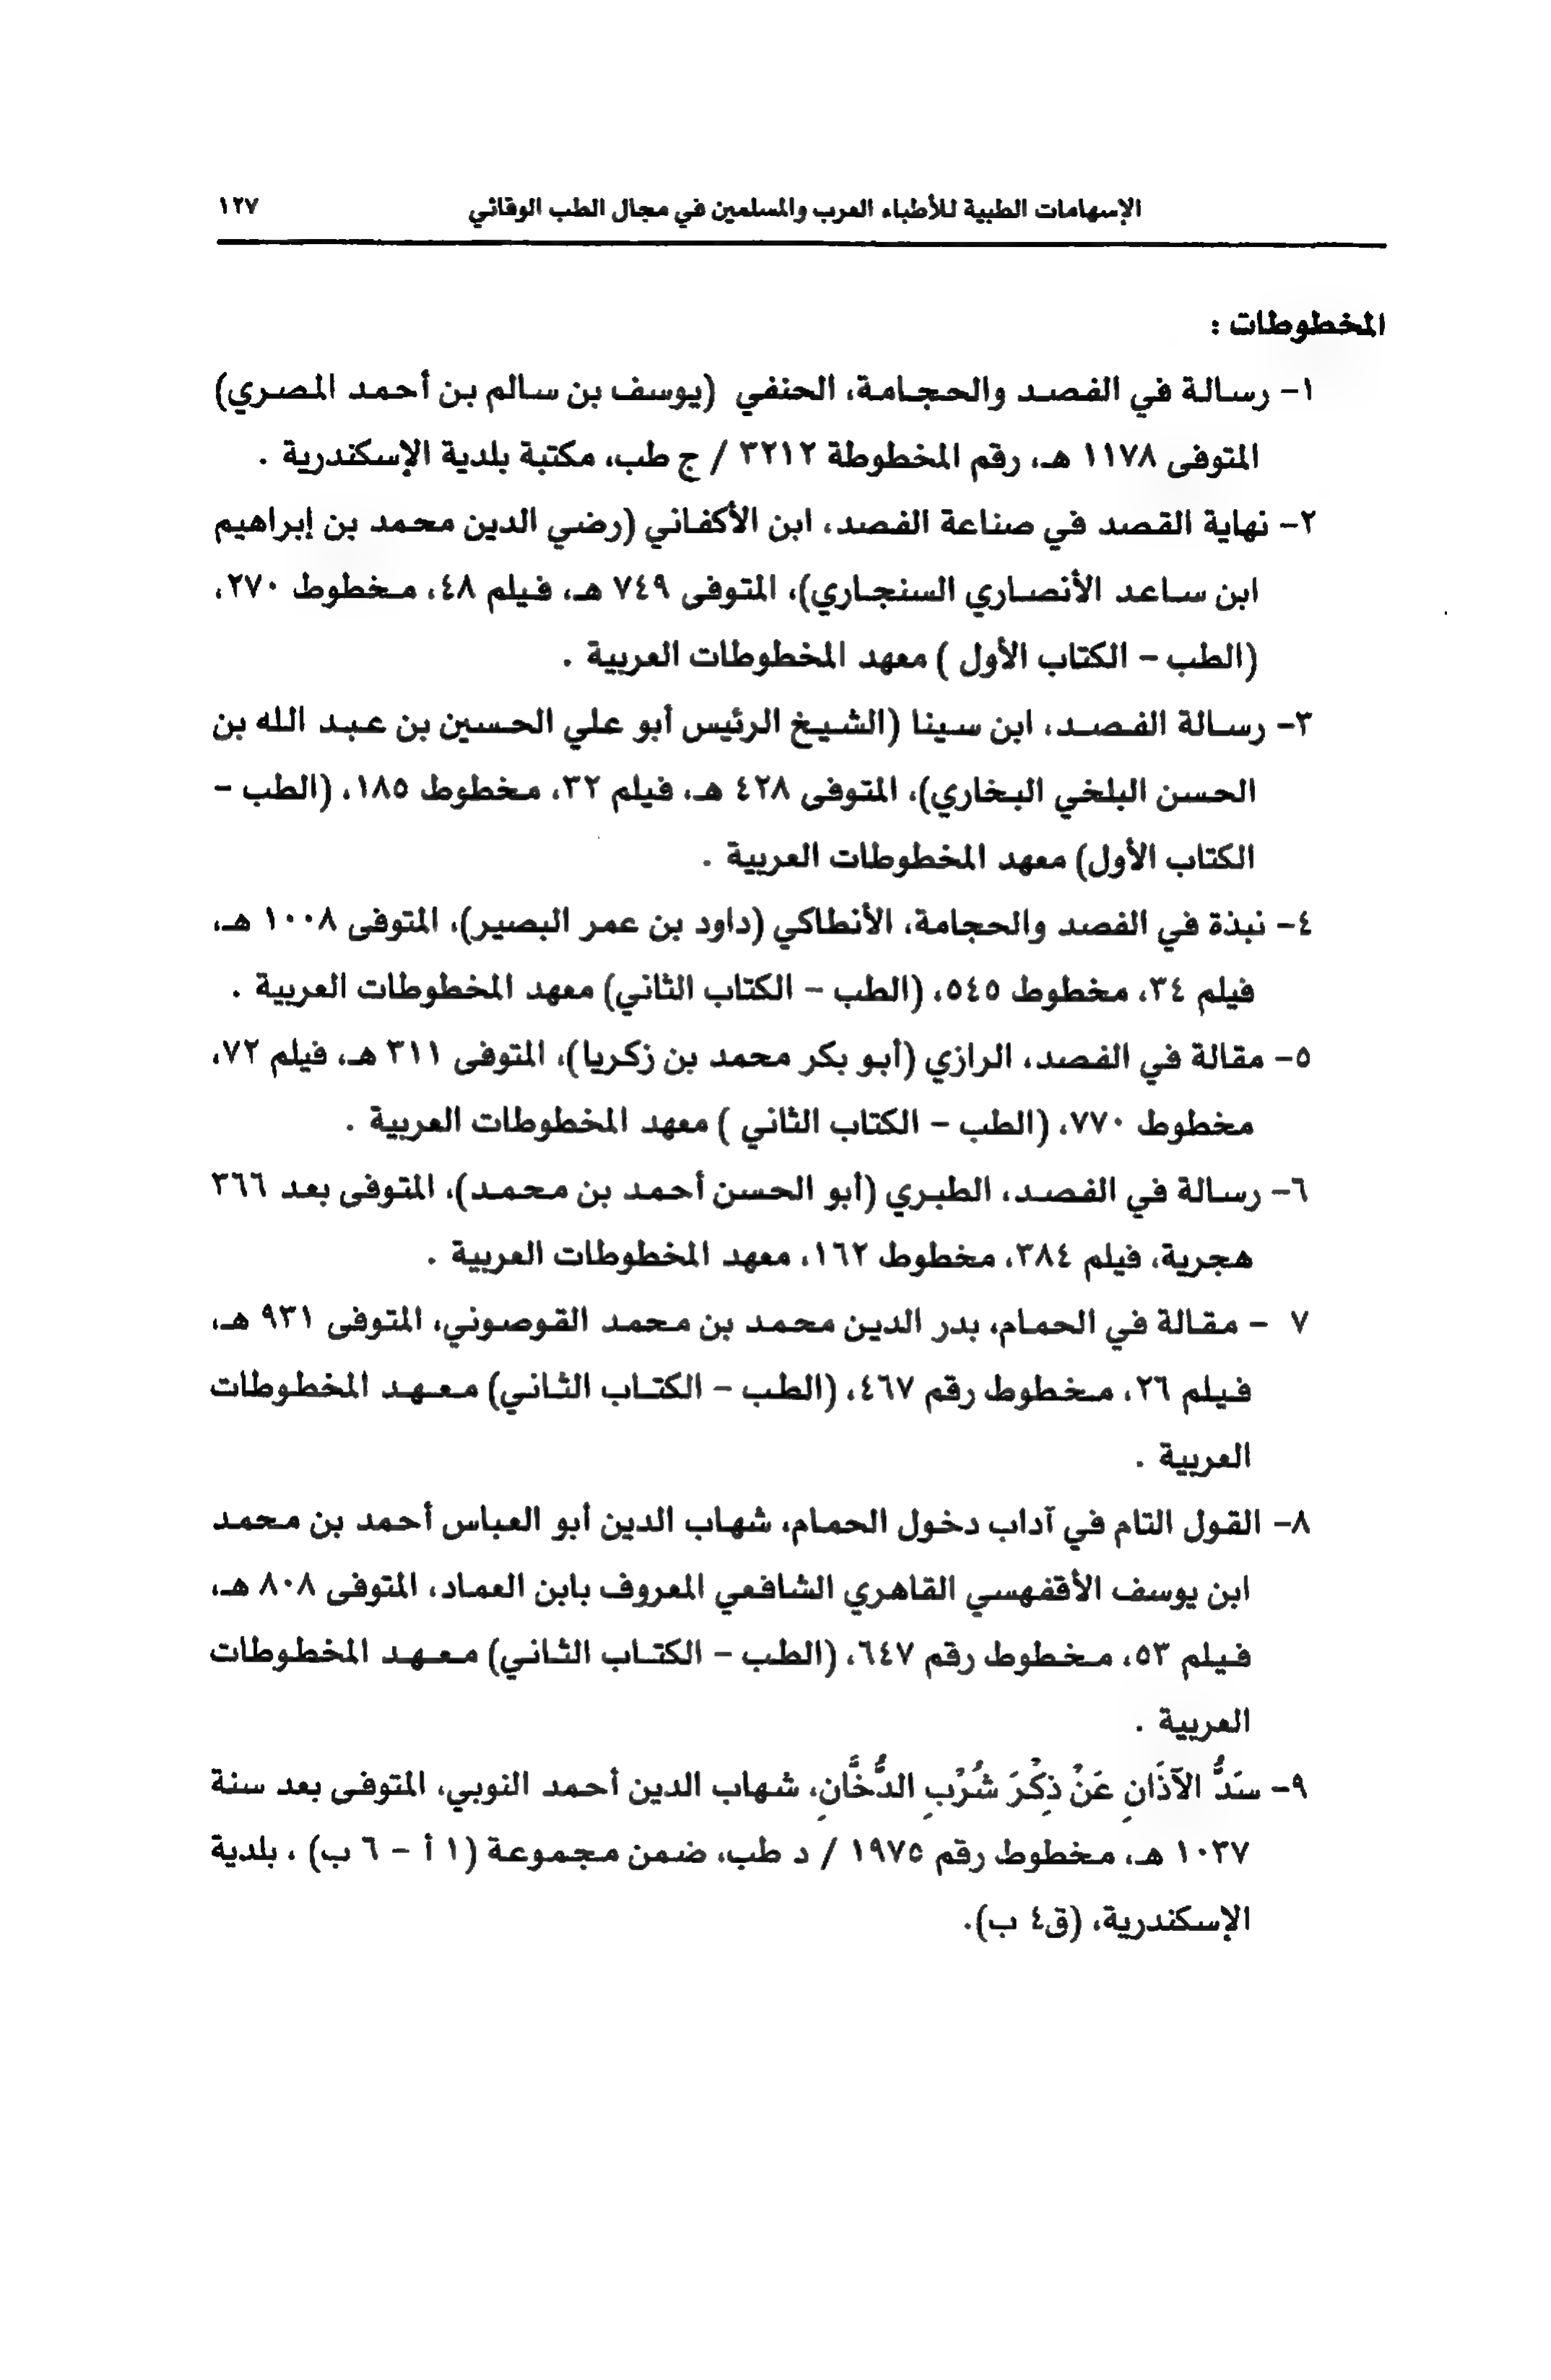 الإسهامات الطبية للأطباء العرب والمسلمين في مجال الطب الوقائي ١٢٧
المخطوطات :
١- رسالة في الفصد والحجامة، الحنفي (يوسف بن سالم بن أحمد المصري)
المتوفى ١١٧٨ هـ، رقم المخطوطة ٣٢١٢ / ج طب، مكتبة بلدية الإسكندرية .
٢- نهاية القصد في صناعة الفصد، ابن الأكفاني (رضي الدين محمد بن إبراهيم
ابن ساعد الأنصاري السنجاري)، المتوفى ٧٤٩ هـ، فيلم ٤٨، مخطوط ٢٧٠،
(الطب - الكتاب الأول ) معهد المخطوطات العربية .
٣- رسالة الفصد، ابن سينا (الشيخ الرئيس أبو علي الحسين بن عبد الله بن
الحسن البلخي البخاري)، المتوفى ٤٢٨ هـ، فيلم ٣٢، مخطوط ١٨٥، (الطب -
الكتاب الأول) معهد المخطوطات العربية .
٤- نبذة في الفصد والحجامة، الأنطاكي (داود بن عمر البصير)، المتوفى ١٠٠٨ هـ،
فيلم ٣٤، مخطوط ٥٤٥، (الطب - الكتاب الثاني) معهد المخطوطات العربية .
٥- مقالة في الفصد، الرازي (أبو بكر محمد بن زكريا)، المتوفى ٣١١ هـ، فيلم ٧٢،
مخطوط ٧٧٠، (الطب - الكتاب الثاني ) معهد المخطوطات العربية .
٦- رسالة في الفصد، الطبري (أبو الحسن أحمد بن محمد)، المتوفى بعد ٣٦٦
هجرية، فيلم ٣٨٤، مخطوط ١٦٢، معهد المخطوطات العربية .
٧ - مقالة في الحمام، بدر الدين محمد بن محمد القوصوني، المتوفى ٩٣١ هـ،
فيلم ٢٦، مخطوط رقم ٤٦٧، (الطب - الكتاب الثاني) معهد المخطوطات
العربية .
٨- القول التام في آداب دخول الحمام، شهاب الدين أبو العباس أحمد بن محمد
ابن يوسف الأقفهسي القاهري الشافعي المعروف بابن العماد، المتوفى ٨٠٨ هـ،
فيلم ٥٣، مخطوط رقم ٦٤٧، (الطب - الكتاب الثاني) معهد المخطوطات
العربية .
٩- سَدُّ الآذَانِ عَنْ ذِكْرَ شُرْبِ الدُّخَّانِ، شهاب الدين أحمد النوبي، المتوفى بعد سنة
١٠٣٧ هـ، مخطوط رقم ١٩٧٥ / د طب، ضمن مجموعة (١ أ - ٦ ب) ، بلدية
الإسكندرية، (ق٤ ب).